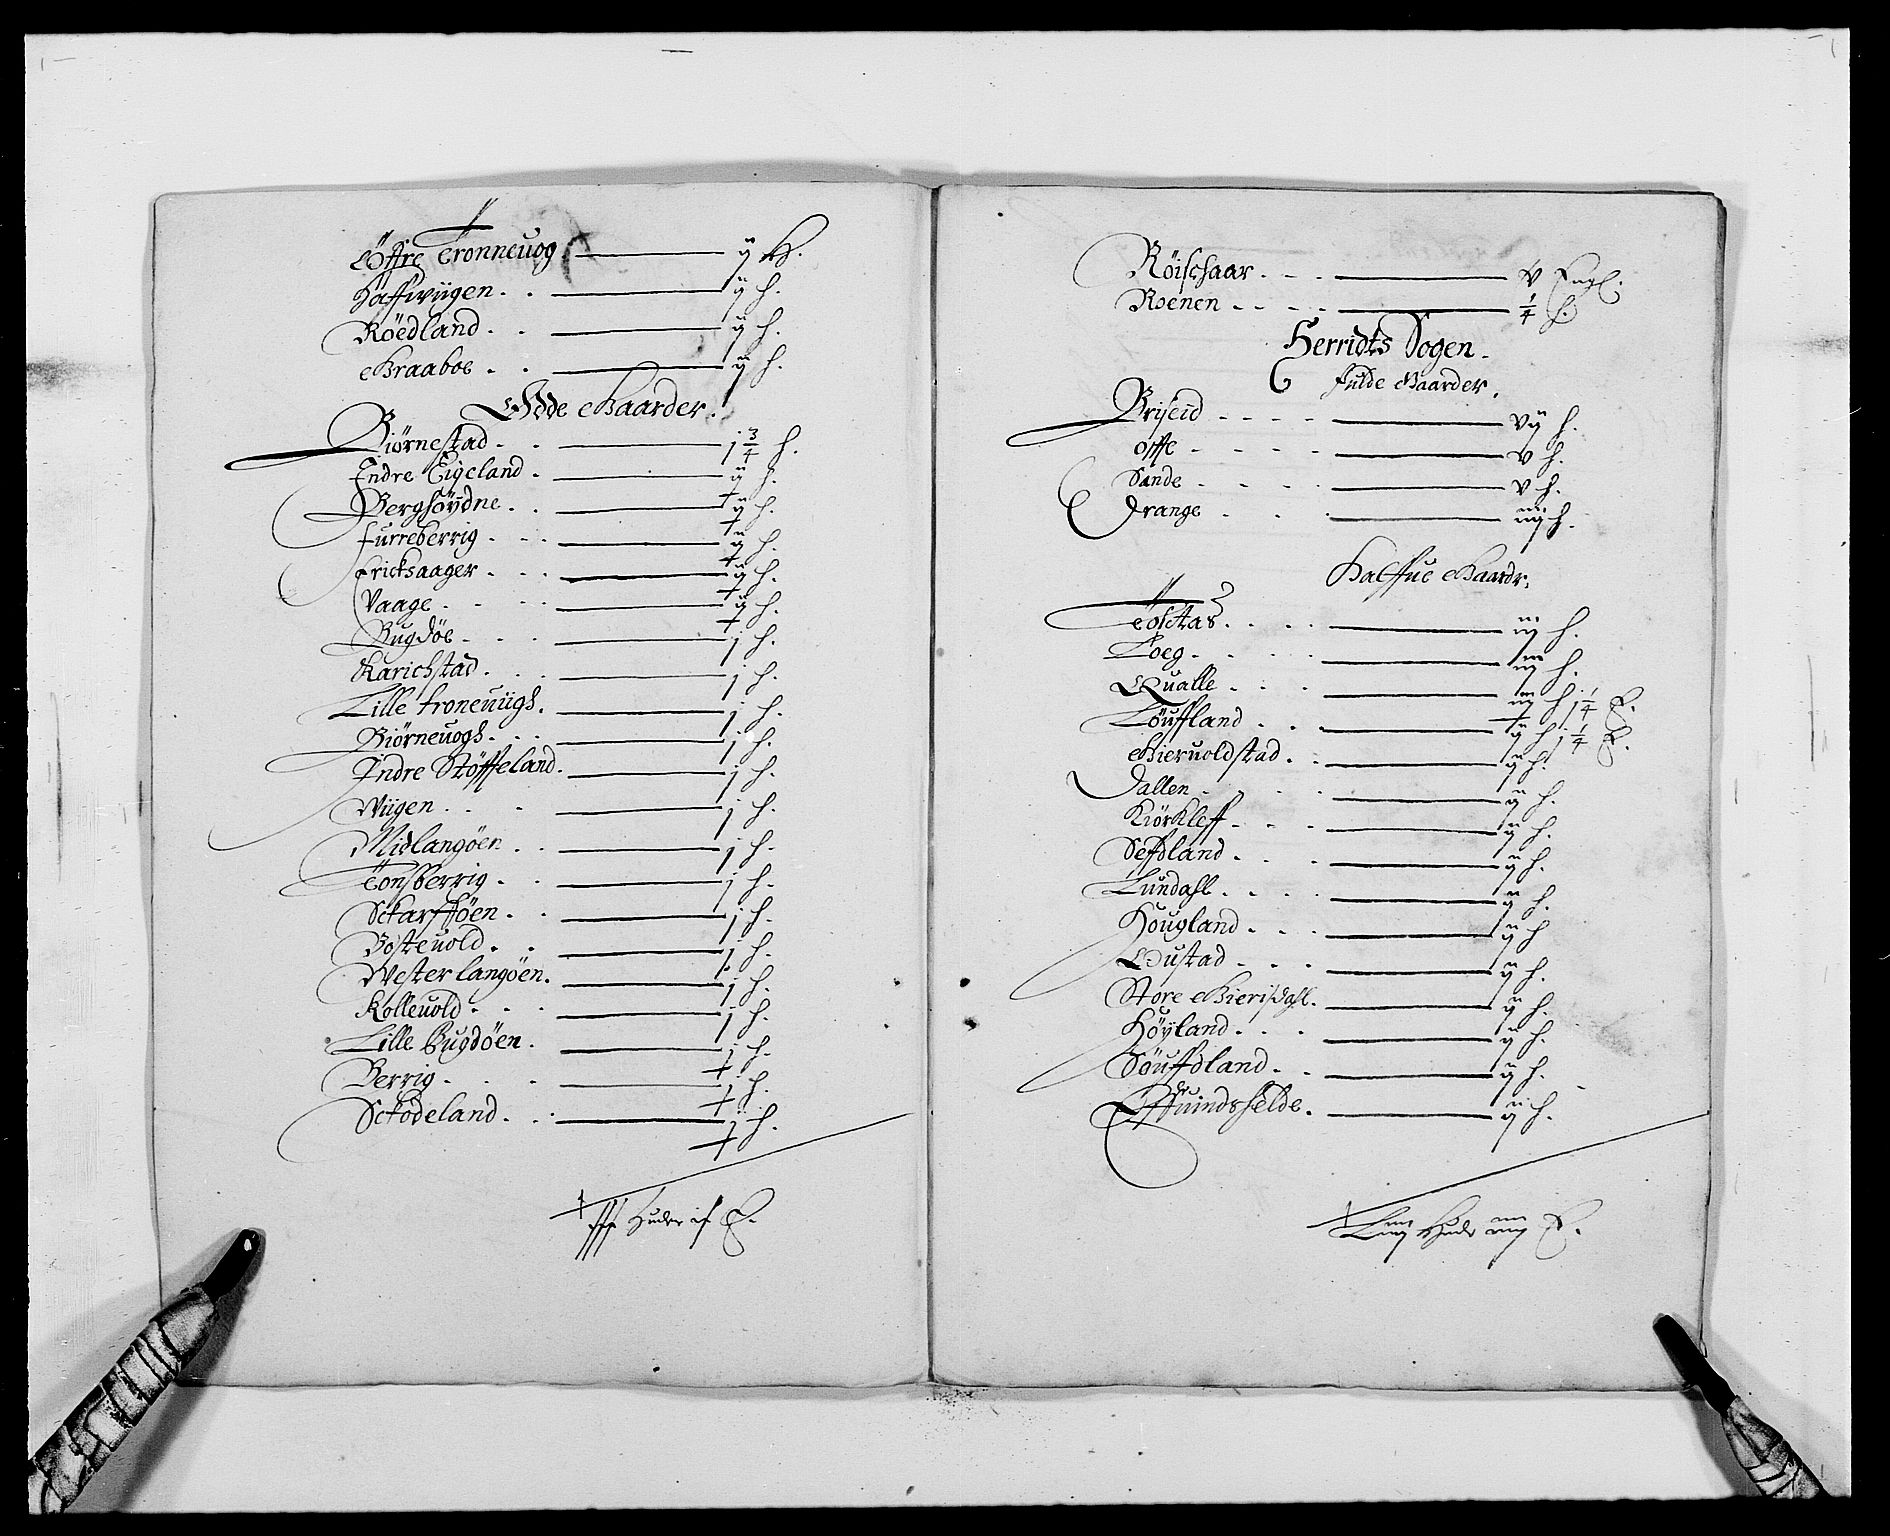 Öffre Tronneuog ij H.
Haffwiigen ij h.
Röedland ij h.
Graaboe ij h.
Øde Gaarder.
Biörnestad j 3/4 h.
Indre Eigeland ij h.
Berghöydne ij h.
Furreberrig ij h.
Ericksaager ij h.
Vaage ij h.
Bugdöe j h.
Karichstad j h.
Lille troneuiigh. j h.
Biörneuogh j h.
Indre Stöffeland. j h.
Wiigen j h.
Midlangöen j h.
Tonsberrig j h.
Sckarfföen j h.
Bosteuold j h.
Westerlangöen. j h.
Kolleuold j h.
Lille Bugdöen j h.
Berrig j h.
Sckodeland ij h.
Huder E.
Röischaar V Engl.
Roenen 1/4 h.
Herridts Sogen.
Fulde Gaarder.
Briseid Vij h.
Offe V h.
Sande V h.
Drange iiij h.
Halffue Gaardr.
Tolctas iij h.
Loeg iij h.
Qualle iij h j 1/4 E.
Löuffland ij h j 1/4 E.
Gieruoldstad ij h.
Dallen ij h.
Kiörkleff ij h.
Seffdland ij h.
Lundahl ij h.
Hougland ij h
Oustad ij h.
Store Gierisdahl. ij h.
Höyland ij h.
Söuffdland ij h.
ij h.
Huder E.